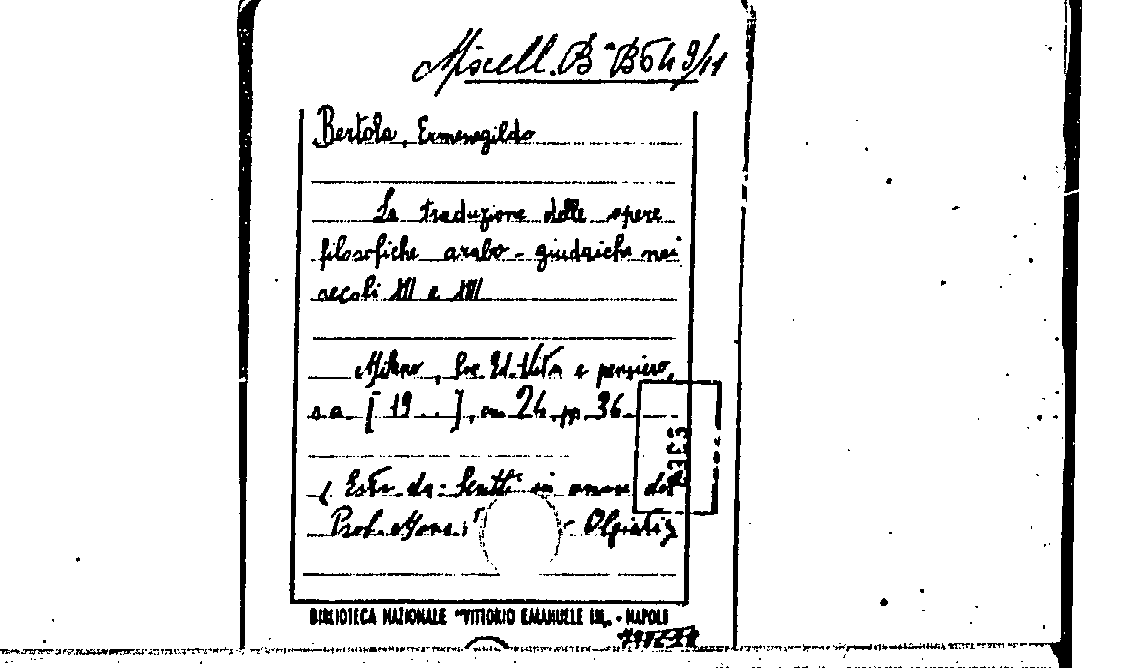 Miscell. B^a B 54 9/11
Bertola, Ermenegildo
La traduzione delle opere
filosofiche arabo-giudaiche nei
secoli XII e XIII
Milano, Soc. Ed. Vita e pensiero,
s.a. [19..], in 24, pp. 36
(Estr. da: Scritti in onore del
Prof. Mons. Olgiati)
BIBLIOTECA NAZIONALE "VITTORIO EMANUELE III" - NAPOLI